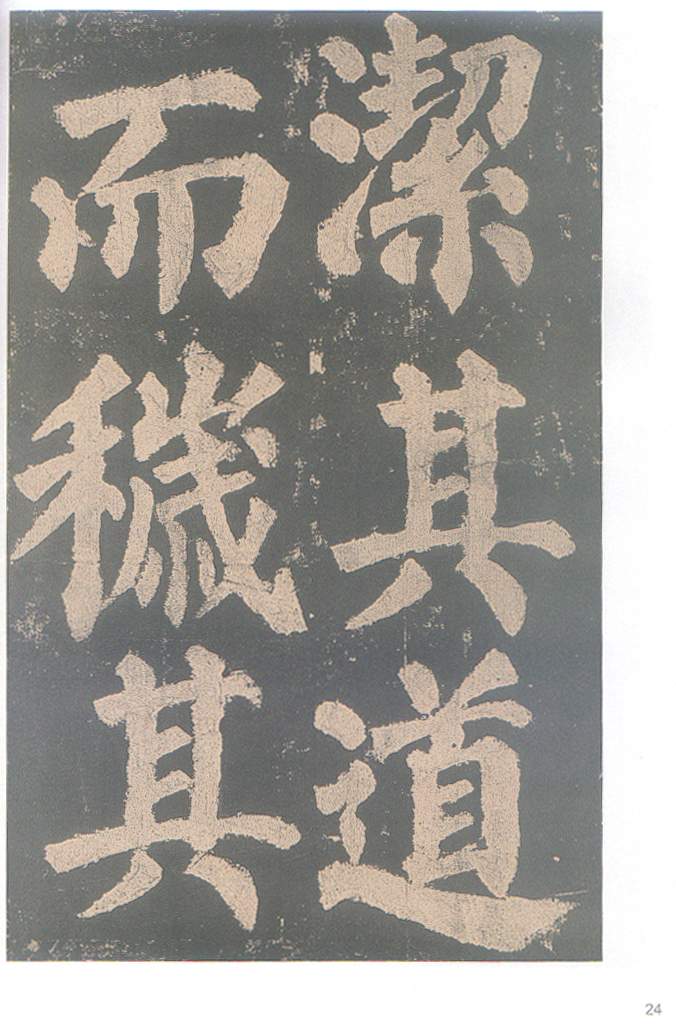 潔其道
而穢其
24